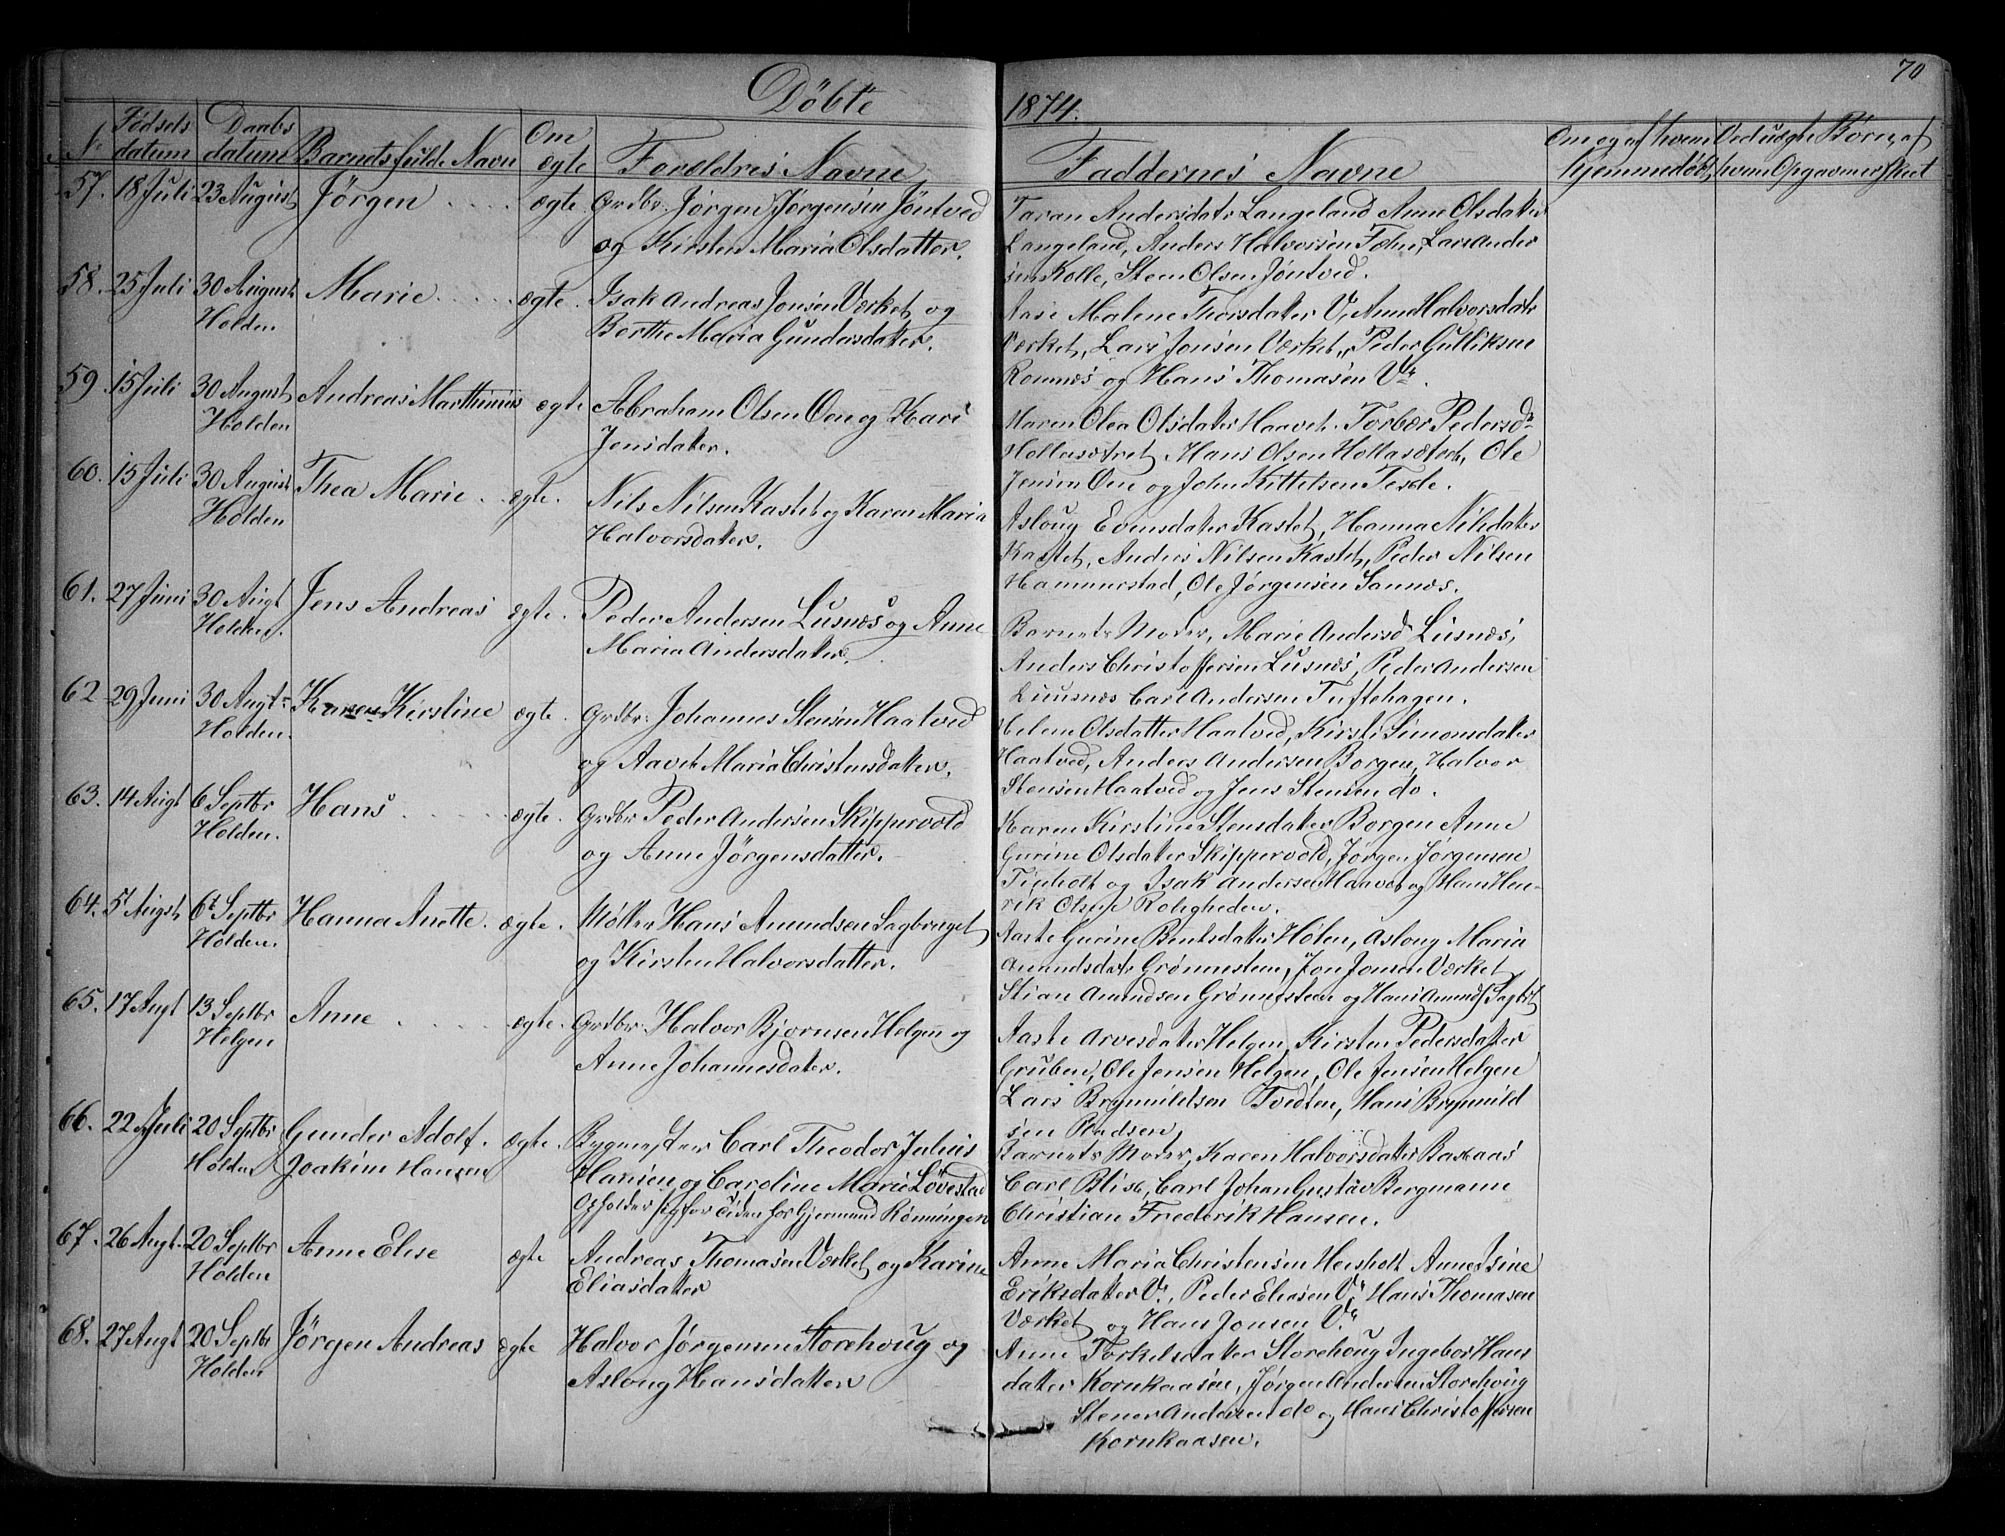 70
Döbte 1874.
No Födsels datum Daabs datum Barnets fulde Navn Om ægte Forældres Navne
Faddernes Navne Om og af hvem hjemmedöbt Ved uægte Börn, af hvem Opgaven er skeet
57. 18 Juli 23 August Jörgen ægte. Grdbr. Jörgen Jörgensen Jöntved
og Kirsten Maria Olsdatter.
Taran Andersdatr Langeland Anne Olsdater
Langeland, Anders Halvorsen Fæhn, Lars Ander
sen Kolle, Steen Olsen Jöntved.
58. 25 Juli 30 August Marie ægte. Isak Andreas Jonsen Værket og
Holden Berthe Maria Gundersdater.
Aase Malene Thorsdater V, Anne Halvorsdatr
Værket, Lars Jonsen Værket, Peder Gulliksen
Romnæs og Hans Thomasen Vk.
59. 15 Juli 30 August Andreas Marthinius ægte Abraham Olsen Oen og Kari
Holden Jensdater.
Maren Olea Olsdater Haavet. Torbær Pedersdr
Hollasætret Hans Olsen Hollasætret, Ole
Jensen Oen og John Kittilsen Tesde.
60. 15 Juli 30 August Thea Marie ægte. Nils Nilsen Kastet og Karen Maria
Holden Halvorsdater.
Asloug Evensdater Kastet, Hanna Nilsdater
Kastet, Anders Nilsen Kastet, Peder Nilsen
Hammerstad, Ole Jörgensen Sannæs.
61. 27 Juni 30 Augt Jens Andreas ægte. Peder Andersen Lusnæs og Anne
Holden. Maria Andersdater.
Barnets Moder, Marie Andersd Lusnæs,
Anders Christoffersen Lusnæs, Peder Andersen
Luusnæs Carl Andersen Tuftehagen.
62 29 Juni 30 Augt Karen Kirstine ægte. Grdbr. Johannes Stensen Haatved
Holden. og Aavet Maria Christensdater.
Helene Olsdatter Haatved, Kirsti Simonsdater
Haatved, Anders Andersen Borgen, Halvor
Stensen Haatved og Jens Stensen do.
63. 14 Augt 6 Septbr Hans ægte. Grdbr Peder Andersen Skippervold
Holden. og Anne Jörgensdatter.
Karen Kirstine Stensdater Borgen Anne
Gurine Olsdater Skippervold, Jörgen Jörgensen
Tinholt og Isak Andersen Haavet og Hans Hen-
rik Olsen Roligheden.
64. 5t Augst 6t Septbr Hanna Anette. ægte. Möller Hans Amundsen Sagbruget
Holden. og Kirsten Halvorsdatter.
Aaste Gurine Bentsdater Holen, Asloug Maria
Amundsdatr Grönnesteen, Jon Jonsen Værket
Stian Amundsen Grönnesteen og Hans Amunds. Sagbrt
65. 17 Augt 13 Septbr Anne ægte. Grdbr. Halvor Bjornsen Helgen og
Helgen Anne Johannesdater.
Aaste Arvesdater Helgen, Kirsten Pedersdatter
Gruben, Ole Jensen Helgen, Ole Jensen Helgen
Lars Brynnildsen Tvedten, Hans Brynnild
sen
66. 22 Juli 20 Septbr Gunder Adolf ægte. Bygmester Carl Theodor Julius
Holden Joakim Hansen Hansen og Caroline Marie Lövestad
Opholder sig for Tiden hos Gjermund Rönningen
Barnets Moder, Karen Halvorsdatter Baskaas
Carl Blix, Carl Johan Gustav Bergmann
Christian Frederik Hansen.
67. 26 Augt. 20 Septbr Anne Elise ægte Andreas Thomasen Værket og Karine
Holden Eliasdatter
Anne Maria Christensen Hersholt Anne Isine
Eriksdater Vk, Peder Eliasen Vk Hans Thomasen
Værket og Hans Jonsen Vk
68. 27 Augt 20 Septbr Jörgen Andreas ægte Halvor Jörgensen Storehoug og
Holden Asloug Hansdatter
Anne Torkelsdater Storehoug Ingebor Hans
datter Kornkaasen, Jörgen Andersen Storehoug
Stener Andersen do og Hans Christoffersen
Kornkaasen.